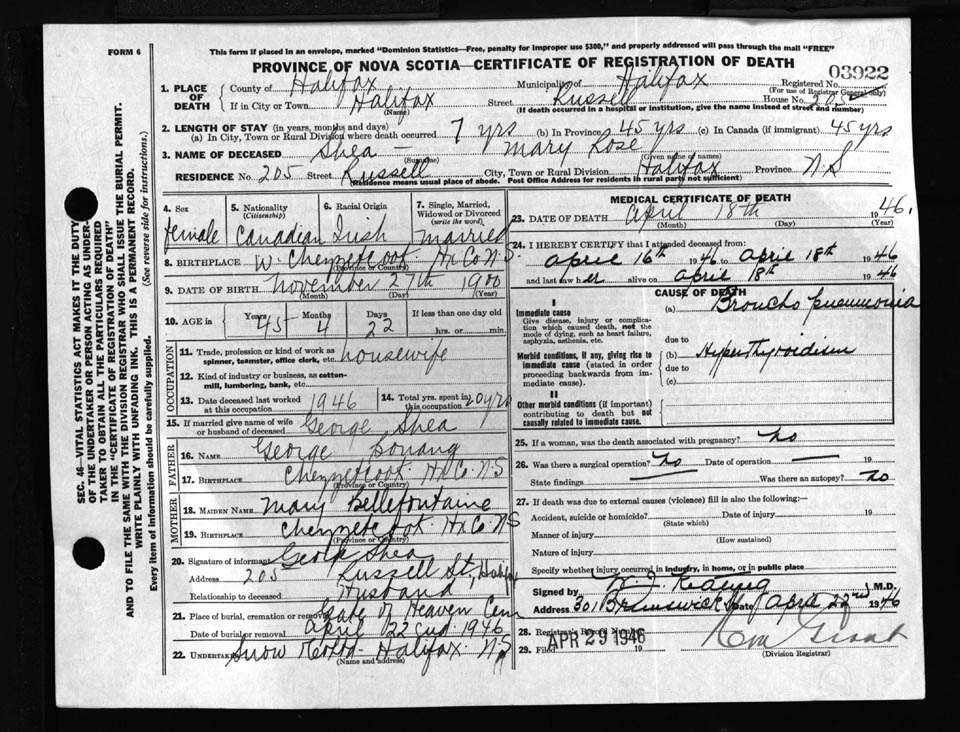 FORM 6
This form if placed in an envelope, marked "Dominion Statistics—Free, penalty for improper use $300," and properly addressed will pass through the mail "FREE"
PROVINCE OF NOVA SCOTIA—CERTIFICATE OF REGISTRATION OF DEATH
03922
1. PLACE OF DEATH
County of Halifax Municipality of Halifax Registered No.
(For use of Registrar General only)
If in City or Town Halifax Street Russell House No. 205
(Name) (If death occurred in a hospital or institution, give the name instead of street and number)
2. LENGTH OF STAY (in years, months and days)
(a) In City, Town or Rural Division where death occurred 7 yrs (b) In Province 45 yrs (c) In Canada (if immigrant) 45 yrs
3. NAME OF DECEASED Shea Mary Rose
(Surname) (Given name or names)
RESIDENCE No. 205 Street Russell City, Town or Rural Division Halifax Province N.S
(Residence means usual place of abode. Post Office Address for residents in rural part not sufficient)
4. Sex
female
5. Nationality
(Citizenship)
Canadian
6. Racial Origin
Irish
7. Single, Married, Widowed or Divorced
(write the word)
Married
8. BIRTHPLACE W. Chezzetcook Hx Co N.S.
(Province or Country)
9. DATE OF BIRTH November 27th 1900
(Month) (Day) (Year)
10. AGE in Years 45 Months 4 Days 22 If less than one day old
hrs. or min.
OCCUPATION
11. Trade, profession or kind of work as spinner, teamster, office clerk, etc. housewife
12. Kind of industry or business, as cotton-mill, lumbering, bank, etc.
13. Date deceased last worked at this occupation 1946
14. Total yrs. spent in this occupation 20 yrs
15. If married give name of wife or husband of deceased George Shea
FATHER
16. NAME George
17. BIRTHPLACE Chezzetcook Hx Co N.S
(Province or Country)
MOTHER
18. MAIDEN NAME Mary Bellefontaine
19. BIRTHPLACE Chezzetcook Hx Co N S
(Province or Country)
20. Signature of informant Shea
Address 205 Russell St, Halifax
Relationship to deceased Husband
21. Place of burial, cremation or removal Gate of Heaven Cem
Date of burial or removal April 22 1946
22. Undertaker Snow Halifax N.S
(Name and address)
MEDICAL CERTIFICATE OF DEATH
23. DATE OF DEATH April 18th 1946.
(Month) (Day) (Year)
24. I HEREBY CERTIFY that I attended deceased from:
April 16th 1946 to April 18th 1946
and last saw her alive on April 18th 1946
CAUSE OF DEATH
I
Immediate cause
Give disease, injury or complication which caused death, not the mode of dying, such as heart failure, asphyxia, asthenia, etc.
(a) Broncho pneumonia
due to
Morbid conditions, if any, giving rise to immediate cause (stated in order proceeding backwards from immediate cause).
(b) Hyperthyroidism
due to
(c)
II
Other morbid conditions (if important) contributing to death but not causally related to immediate cause.
25. If a woman, was the death associated with pregnancy? No
26. Was there a surgical operation? No Date of operation 19
State findings Was there an autopsy? No
27. If death was due to external causes (violence) fill in also the following:—
Accident, suicide or homicide? Date of injury 19
(State which)
Manner of injury
(How sustained)
Nature of injury
Specify whether injury occurred in Industry, in home, or in public place
Signed by M.D.
Address 301 Brunswick Date April 22nd 1946
28. Registrar's Record Number
29. Filed APR 29 1946 19
(Division Registrar)
SEC. 46—VITAL STATISTICS ACT MAKES IT THE DUTY
OF THE UNDERTAKER OR PERSON ACTING AS UNDER-
TAKER TO OBTAIN ALL THE PARTICULARS REQUIRED
IN THE "CERTIFICATE OF REGISTRATION OF DEATH"
AND TO FILE THE SAME WITH THE DIVISION REGISTRAR WHO SHALL ISSUE THE BURIAL PERMIT.
WRITE PLAINLY WITH UNFADING INK. THIS IS A PERMANENT RECORD.
Every item of information should be carefully supplied. (See reverse side for instructions.)